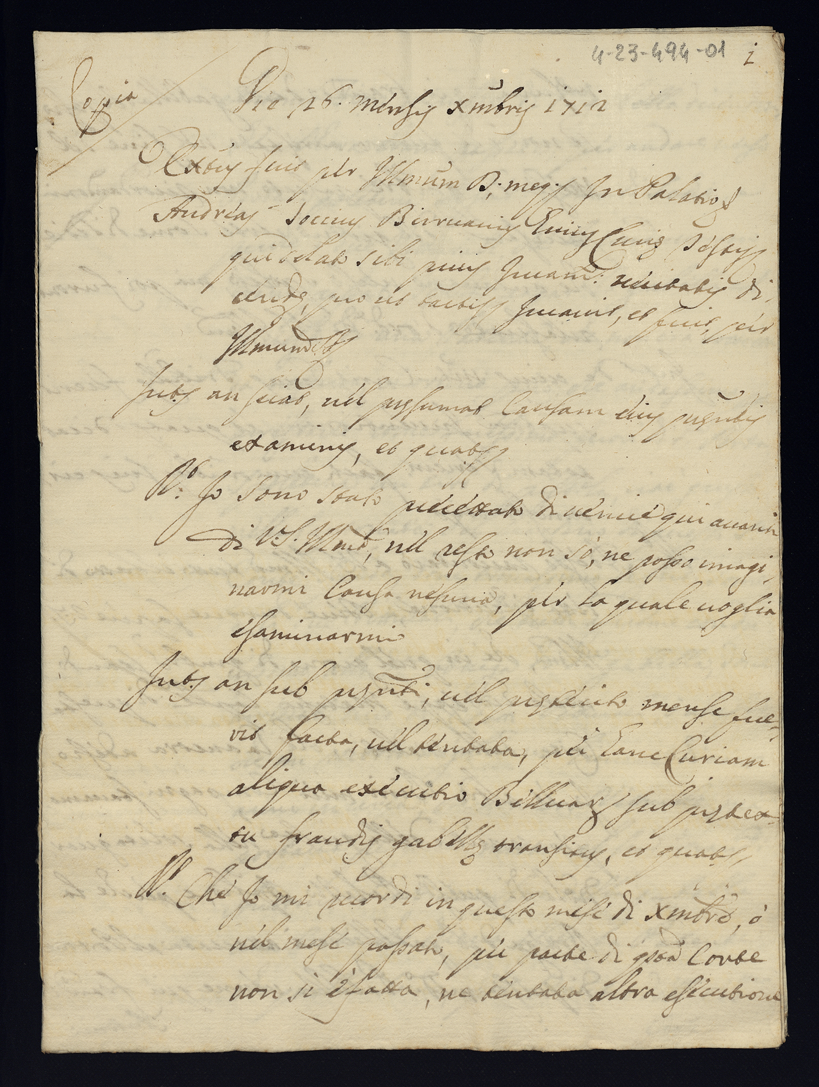 4-23-494-01
1
Coppia
Die 26. mensis Xmbris 1712
Extus fuit per Illmum D; meq; In Palatio
Andreas Eius Curiæ
qui delato sibi prius Juram: veritatis di-
cendæ, pro ut tactis Juravit, et fuit per
Illmum D
Intus an sciat, vel præsumat Causam eius præntis
examinis, et quatus
Rt: Io sono stato precettato di venire qui avanti
di V.S. Illma, nel resto non sò, ne posso imagi-
narmi Causa nesuna, per la quale voglia
esaminarmi
Intus an sub prænti, vel præterito mense fue-
rit facta, vel tentata, per hanc Curiam
aliqua executio sub prætex-
tu fraudis gabellæ transitus, et quatus
Rt: Che Io mi ricordi in questo mese di Xmbre, ò
nel mese passato, per parte di qsta Corte
non si è fatta, ne tentata altra esecutione